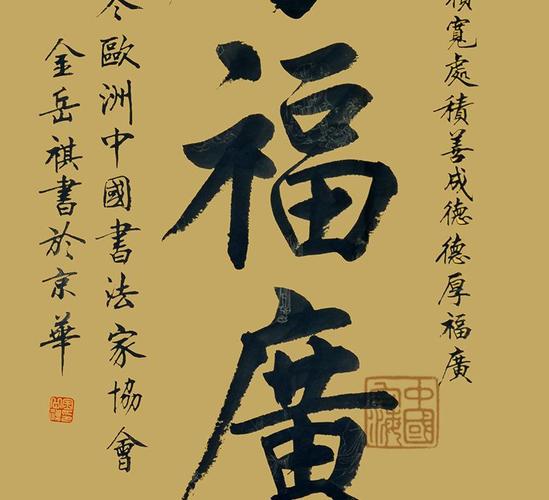 寬處積善成德德厚福廣
福廣
歐洲中國書法家協會
金岳祺書於京華
中國